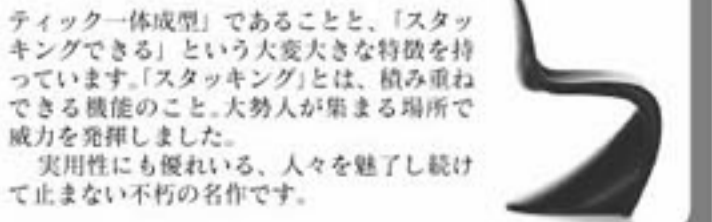 ティック一体成型」であることと、「スタッ
キングできる」という大変大きな特徴を持
っています。「スタッキング」とは、積み重ね
できる機能のこと。大勢人が集まる場所で
威力を発揮しました。
　実用性にも優れいる、人々を魅了し続け
て止まない不朽の名作です。